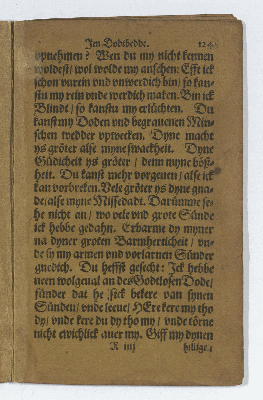 Im Dodtbedde. 124
vpnehmen? Wen du my nicht kennen
woldest/ wol wolde my anschen: Efft ick
schon vnrein vnd vnwerdich bin/ so kan-
stu my rein vnde werdich maken. Bin ick
Blindt/ so kanstu my erlüchten. Du
kanst my Doden vnd begrauenen Min-
schen wedder vpwecken. Dyne macht
ys gröter alse myne swackheit. Dyne
Güdicheit ys gröter/ denn myne böß-
heit. Du kanst mehr vorgeuen/ alse ick
kan vorbreken. Vele gröter ys dyne gna-
de/ alse myne Missedadt. Darümme se-
he nicht an/ wo vele vnd grote Sünde
ick hebbe gedahn. Erbarme dy myner
na dyner groten Barmherticheit/ vn-
de sy my armen vnd vorlarnen Sünder
gnedich. Du heffst gesecht: Ick hebbe
neen wolgeual an des Godtlosen Dode/
sünder dat he sick bekere van synen
Sünden/ vnde leeue/ HErr kere my tho
dy/ vnde kere du dy tho my/ vnde törne
nicht ewichlick auer my. Giff my dynen
R iiij hillige